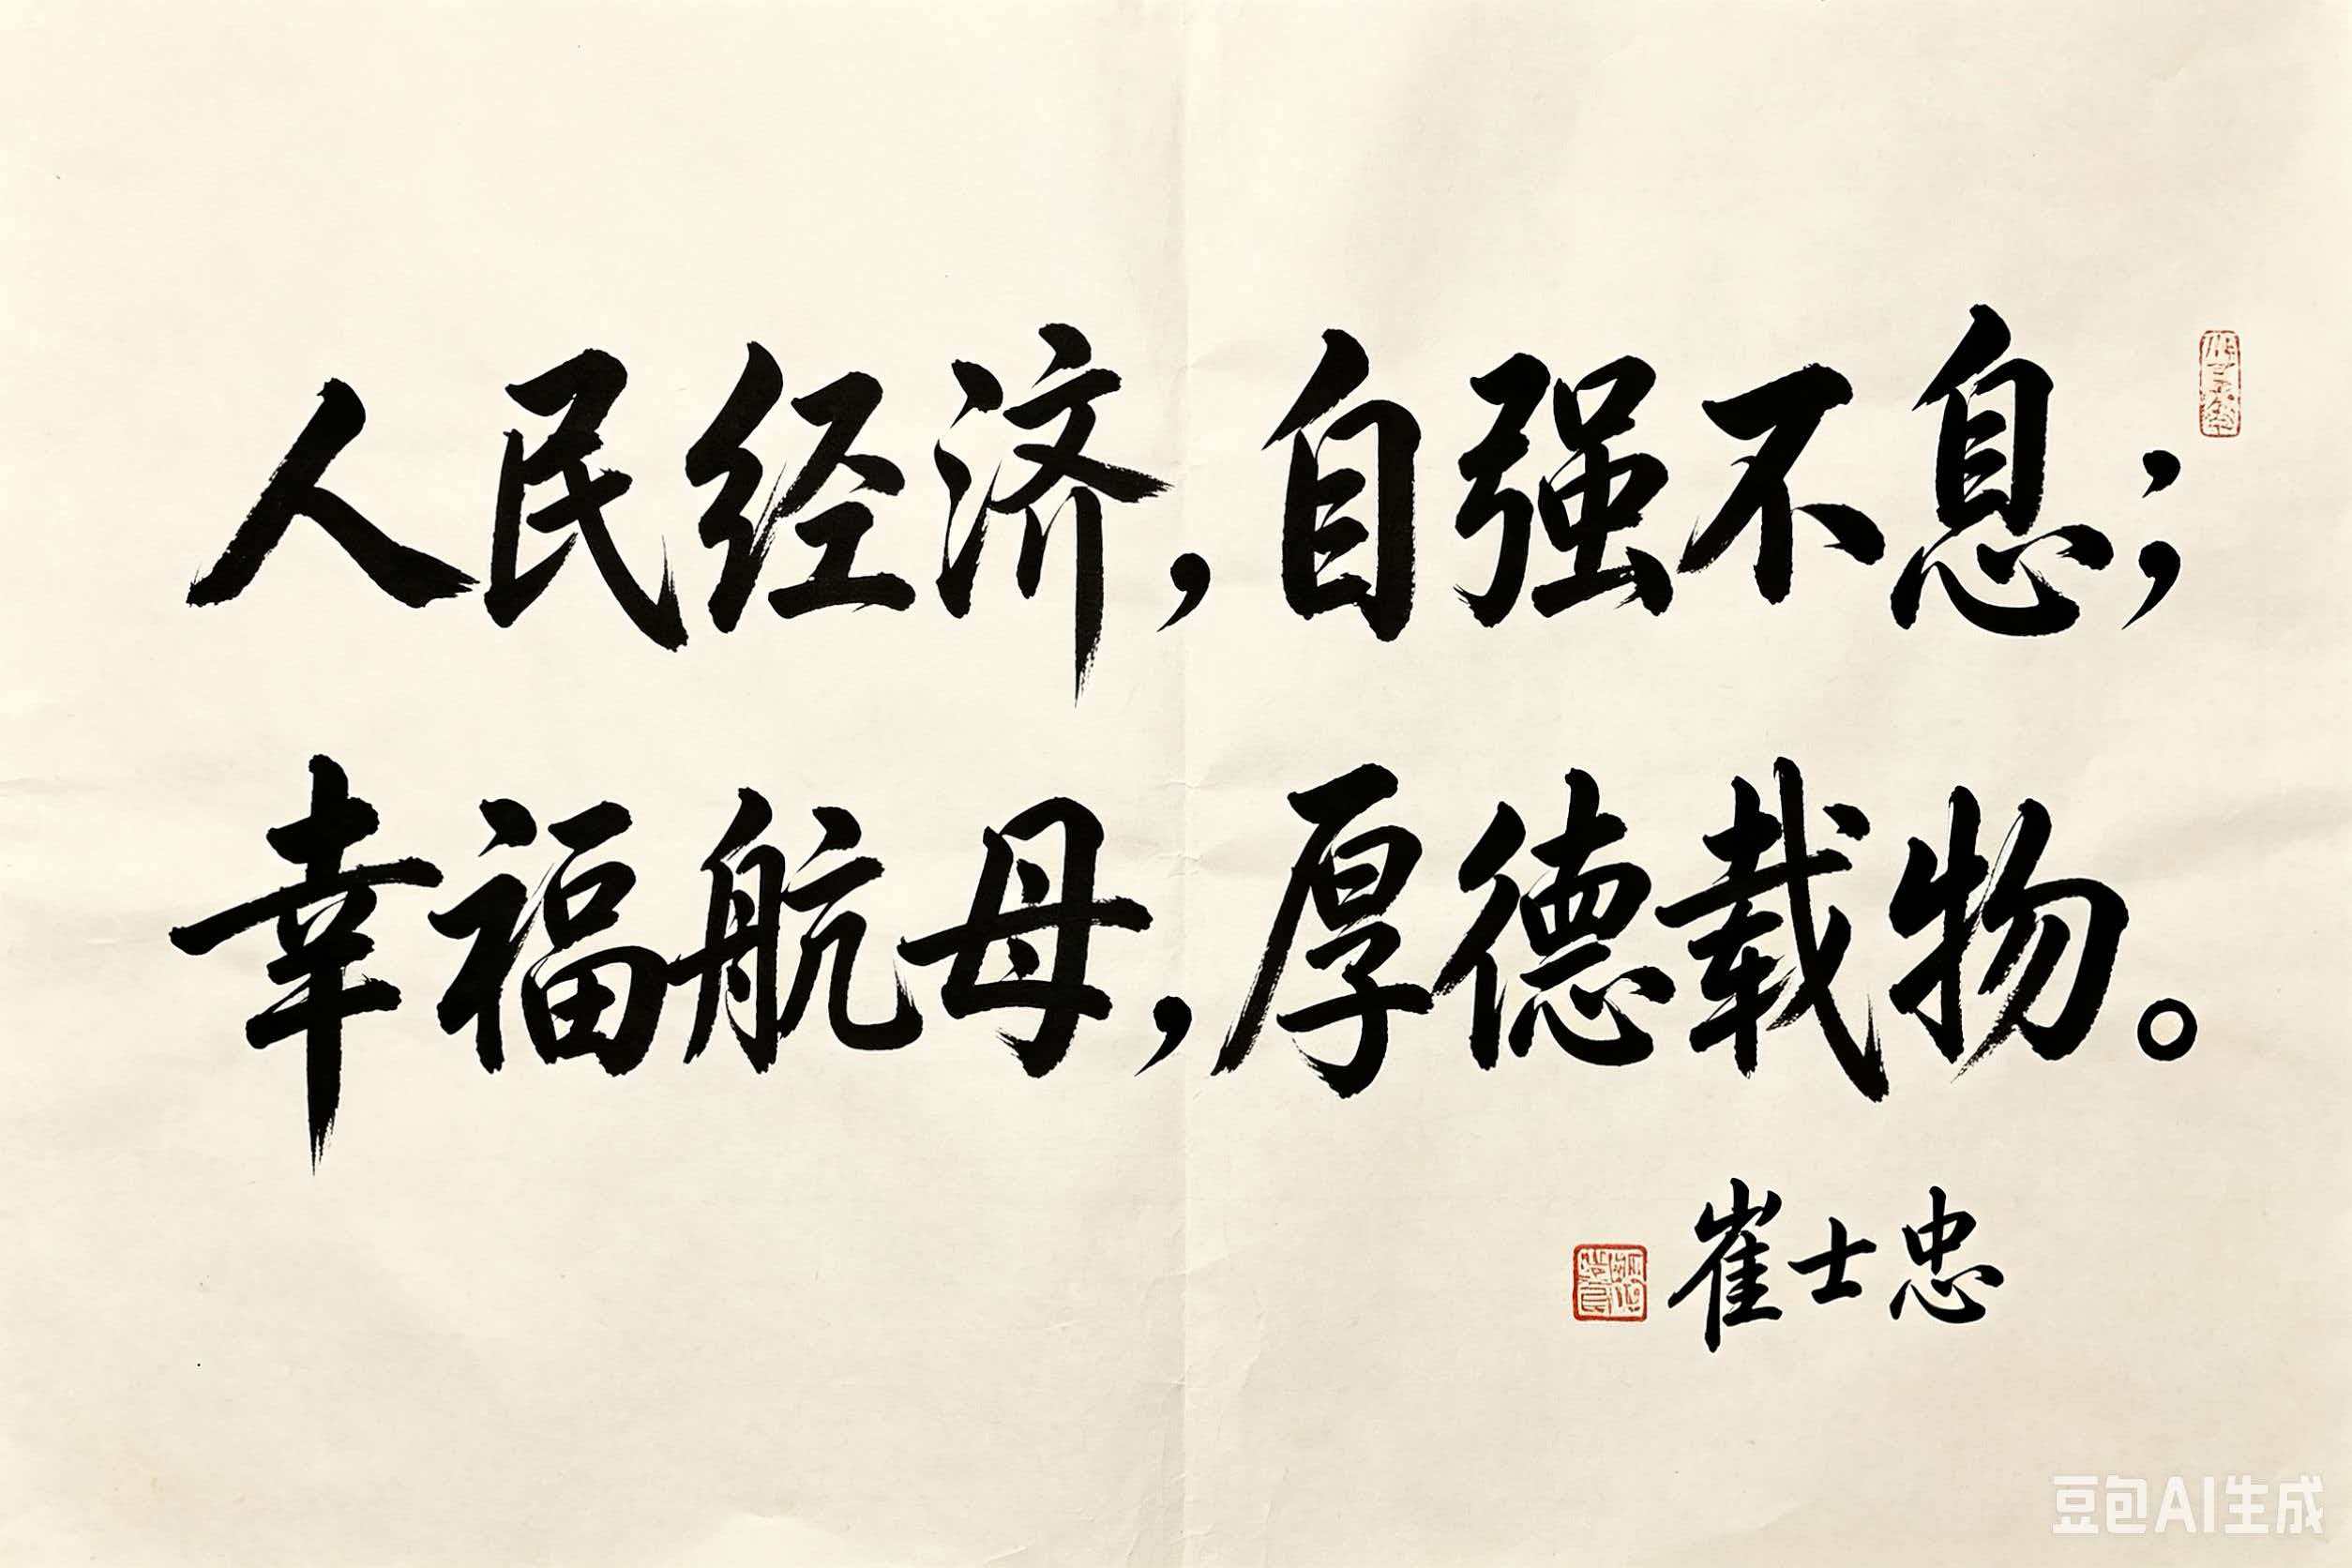 人民经济,自强不息;
幸福航母,厚德载物。
崔士忠
豆包AI生成